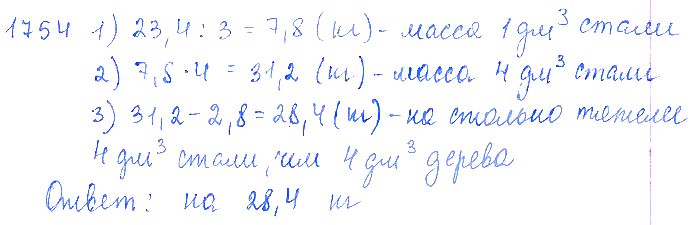 1754 1) 23,4 : 3 = 7,8 (кг) - масса 1 дм³ стали
2) 7,8 · 4 = 31,2 (кг) - масса 4 дм³ стали
3) 31,2 - 2,8 = 28,4 (кг) - на столько тяжелее
4 дм³ стали, чем 4 дм³ дерева
Ответ: на 28,4 кг